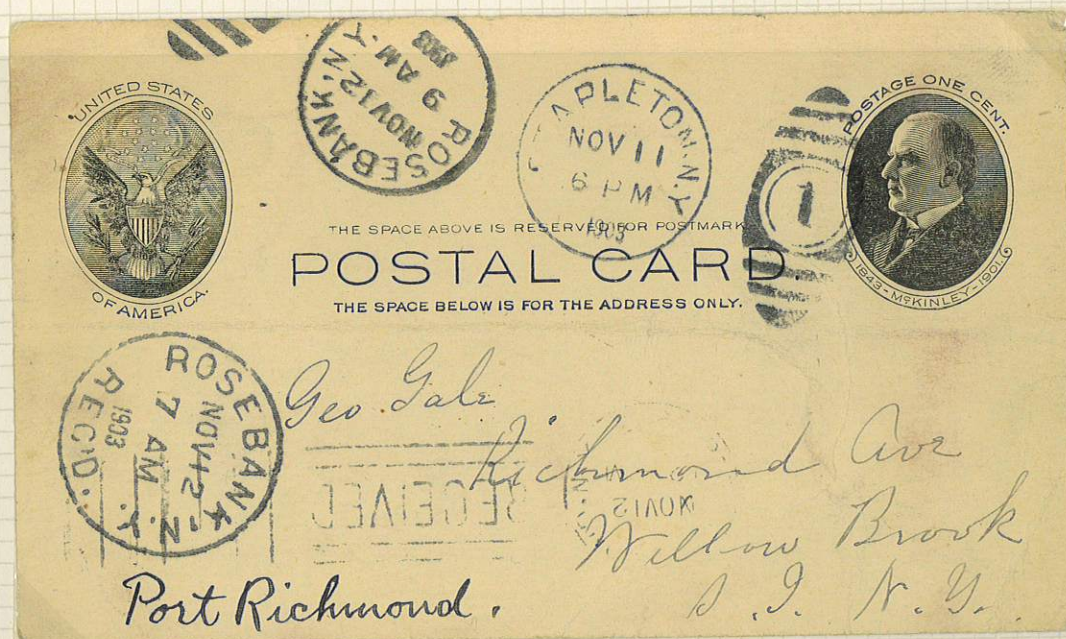 UNITED STATES
OF AMERICA.
ROSEBANK, N.Y.
NOV 12
9 AM
1903
STAPLETON, N.Y.
NOV 11
6 PM
1903
1
POSTAGE ONE CENT.
1843 - McKINLEY - 1901.
THE SPACE ABOVE IS RESERVED FOR POSTMARK
POSTAL CARD
THE SPACE BELOW IS FOR THE ADDRESS ONLY.
ROSEBANK, N.Y.
NOV 12
7 AM
1903
REC'D.
Geo Gale
Richmond Ave
Willow Brook
S. I. N. Y.
RECEIVED
NOV 12
Port Richmond.